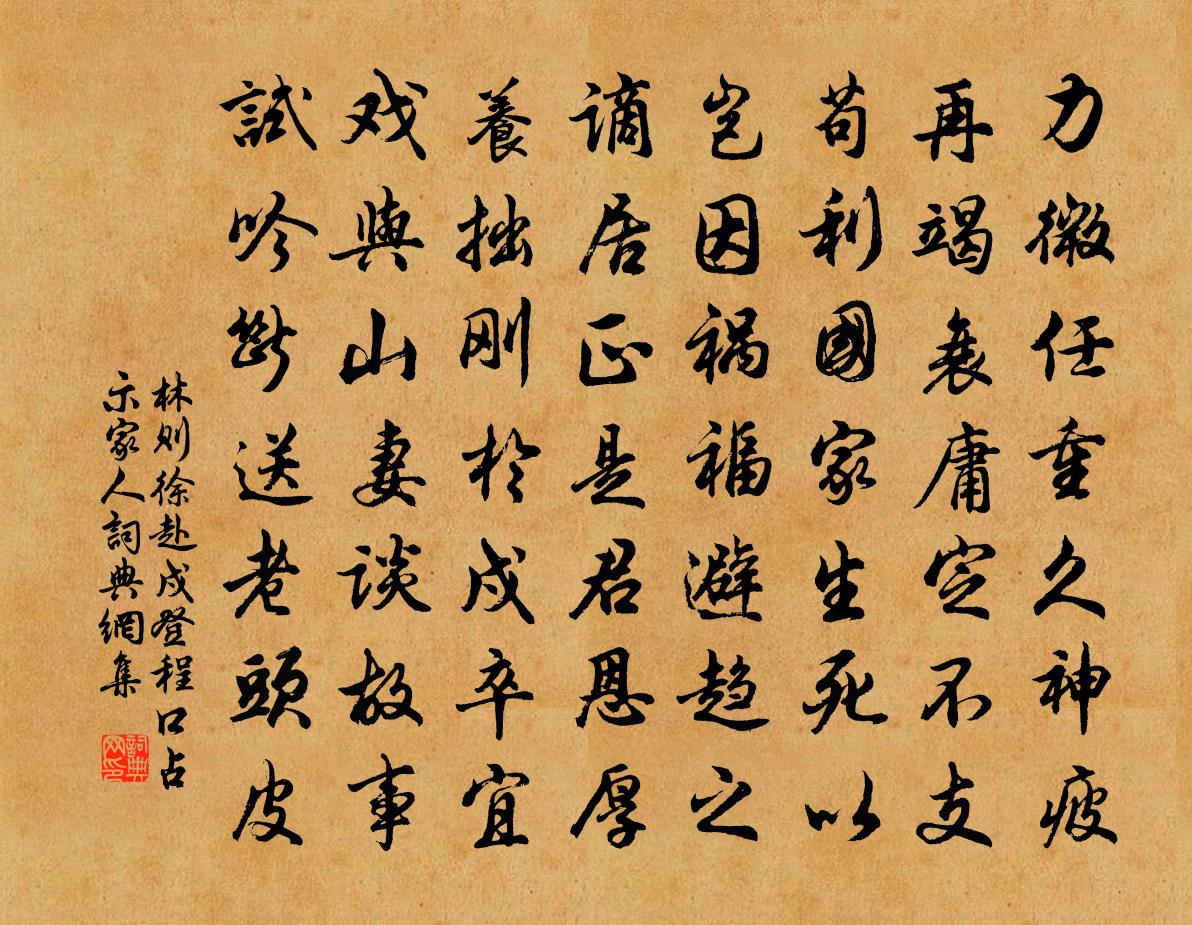 力微任重久神疲
再竭衰庸定不支
苟利國家生死以
岂因祸福避趋之
谪居正是君恩厚
養拙刚於戍卒宜
戏與山妻谈故事
試吟斷送老頭皮
林则徐赴戍登程口占
示家人詞典網集
詞典
网印